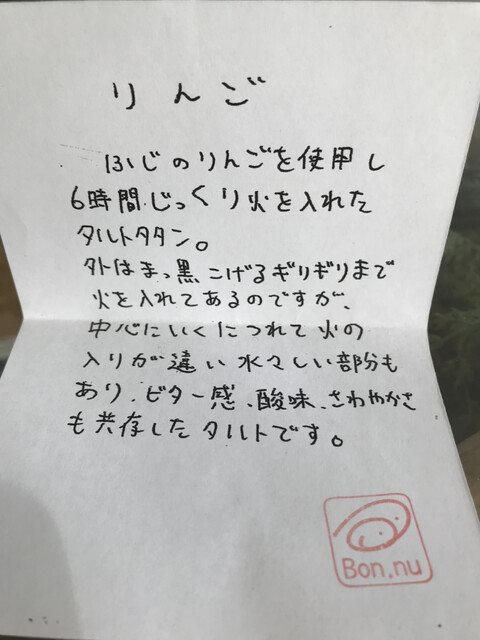 りんご
ふじのりんごを使用し
6時間じっくり火を入れた
タルトタタン。
外はまっ黒こげるギリギリまで
火を入れてあるのですが、
中心にいくにつれて火の
入りが違い水々しい部分も
あり、ビター感、酸味、さわやかさ
も共存したタルトです。
Bon.nu